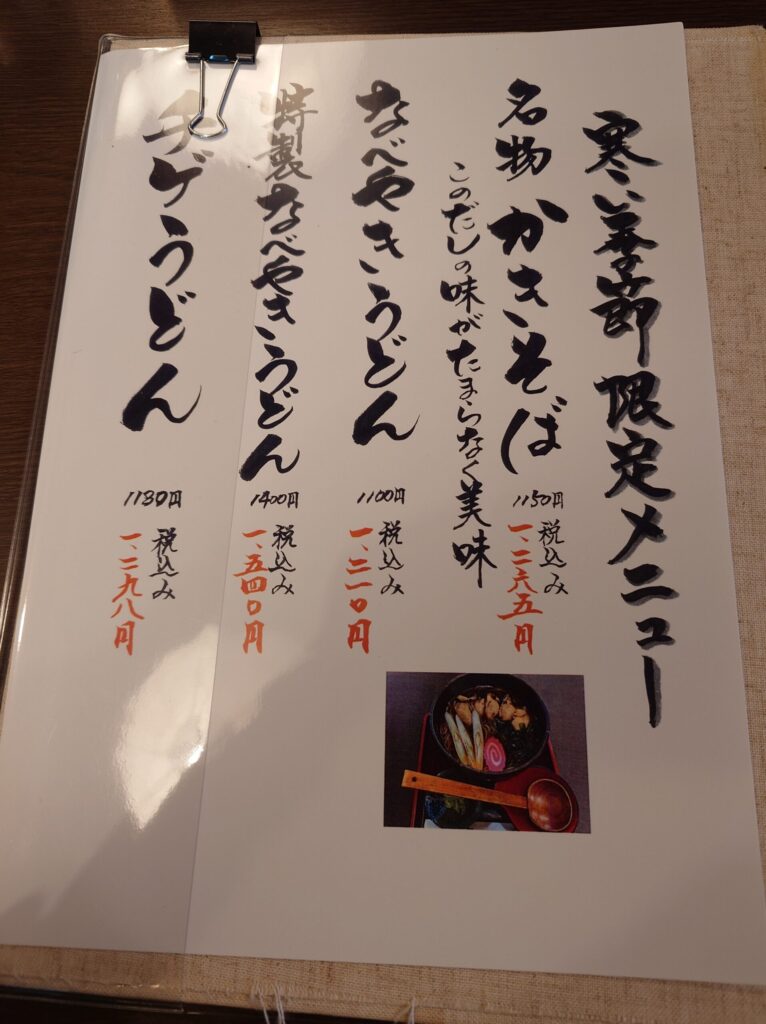 寒い季節限定メニュー
名物 かきそば
1150円
税込み
一、二六五円
このだしの味がたまらなく美味
なべやきうどん
1100円
税込み
一、二一〇円
特製なべやきうどん
1400円
税込み
一、五四〇円
チゲうどん
1180円
税込み
一、二九八円